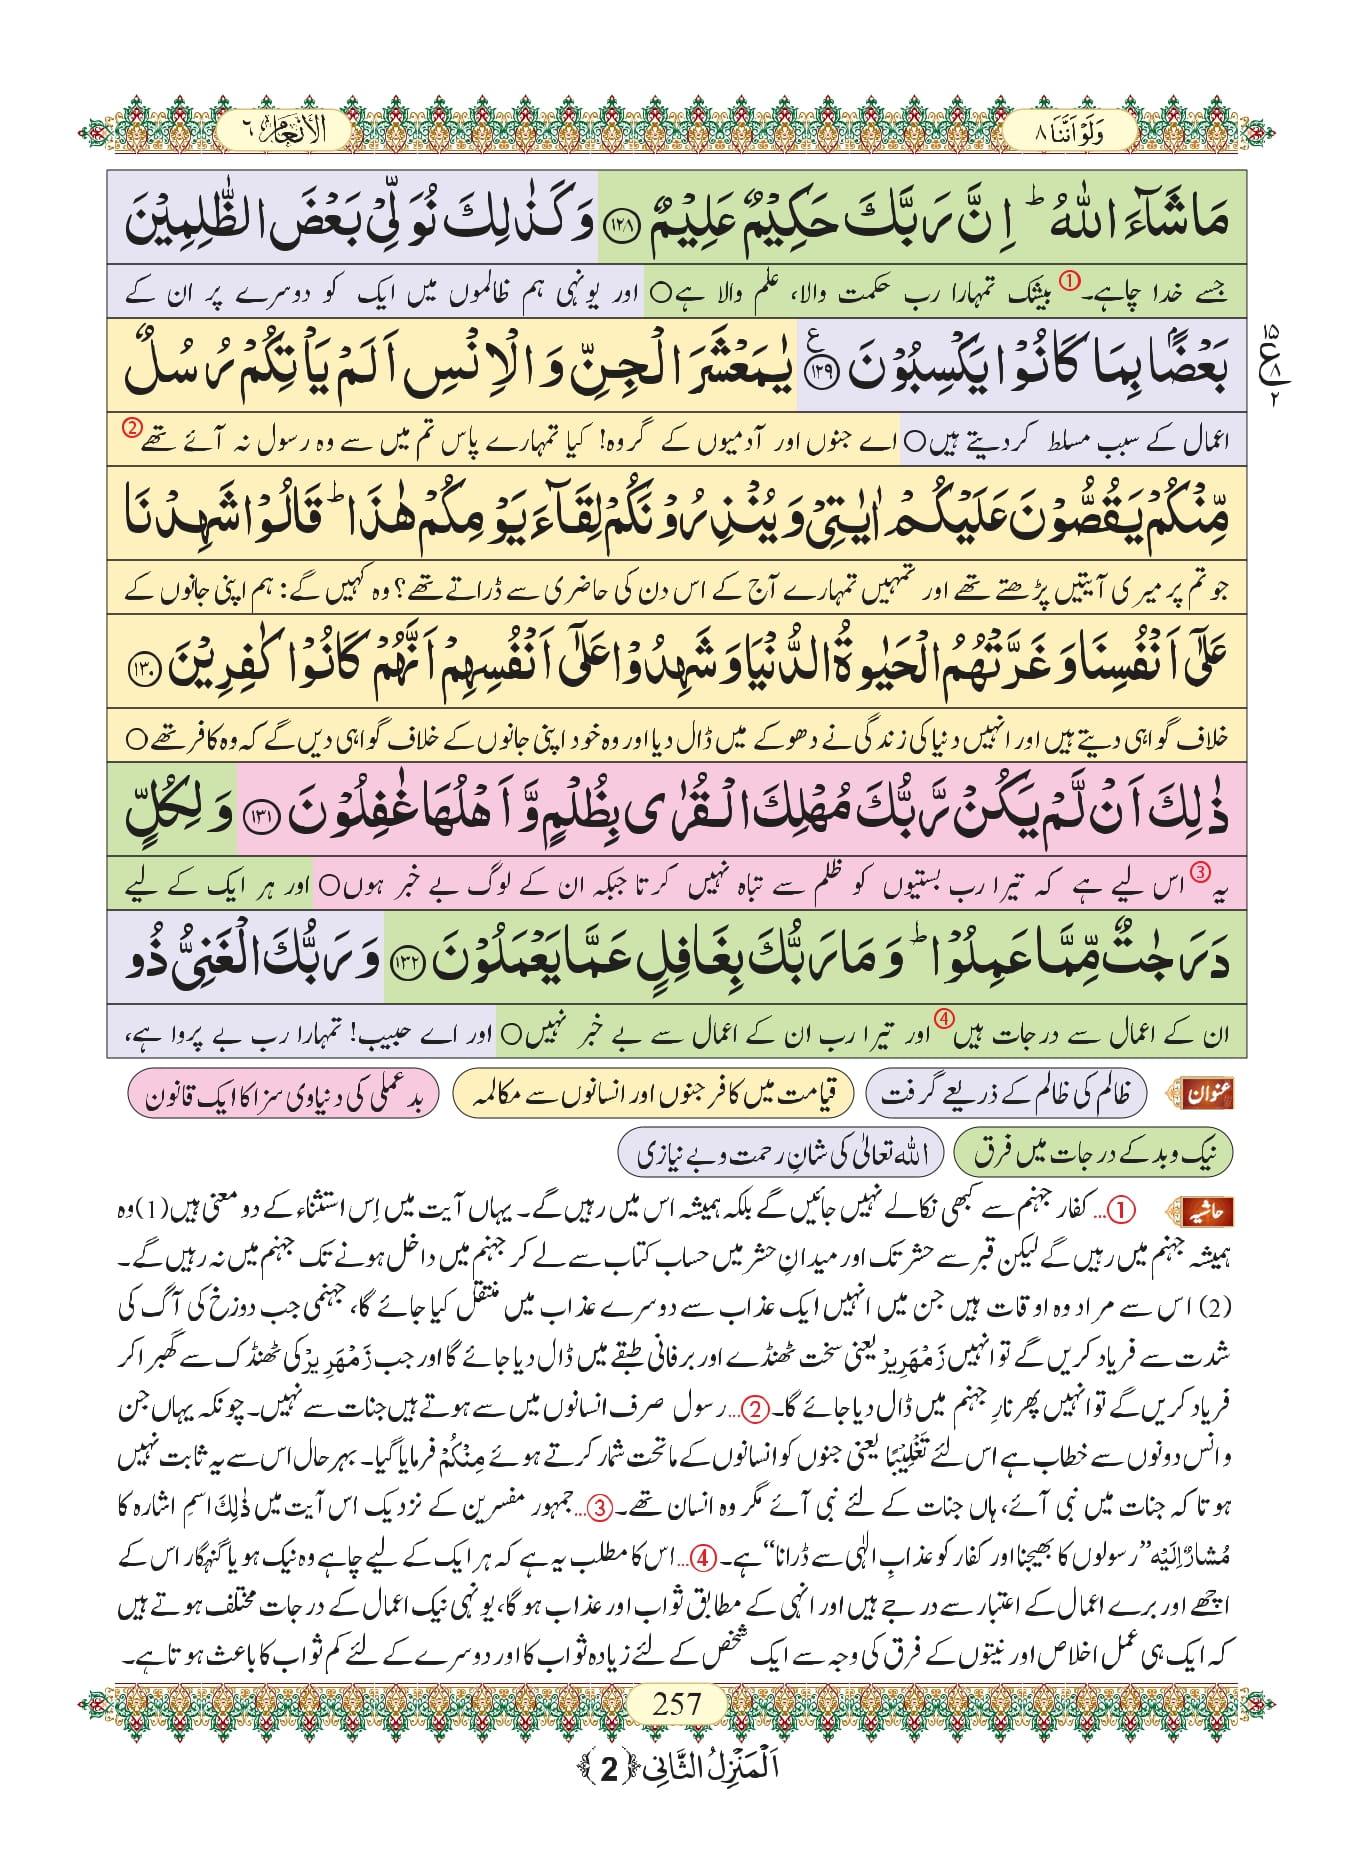 وَلَوْ اَنَّنَا ۸
الانعام ۶
مَا شَآءَ اللّٰهُ ؕ اِنَّ رَبَّكَ حَكِیْمٌ عَلِیْمٌ ﴿۱۲۸﴾ وَ كَذٰلِكَ نُوَلِّیْ بَعْضَ الظّٰلِمِیْنَ
جسے خدا چاہے۔① بیشک تمہارا رب حکمت والا، علم والا ہے○ اور یونہی ہم ظالموں میں ایک کو دوسرے پر ان کے
بَعْضًۢا بِمَا كَانُوْا یَكْسِبُوْنَ ﴿۱۲۹﴾ ع یٰمَعْشَرَ الْجِنِّ وَ الْاِنْسِ اَلَمْ یَاْتِكُمْ رُسُلٌ
۱۵
ع
۸
۲
اعمال کے سبب مسلط کردیتے ہیں○ اے جنوں اور آدمیوں کے گروہ! کیا تمہارے پاس تم میں سے وہ رسول نہ آئے تھے②
مِّنْكُمْ یَقُصُّوْنَ عَلَیْكُمْ اٰیٰتِیْ وَ یُنْذِرُوْنَكُمْ لِقَآءَ یَوْمِكُمْ هٰذَا ؕ قَالُوْا شَهِدْنَا
جو تم پر میری آیتیں پڑھتے تھے اور تمہیں تمہارے آج کے اس دن کی حاضری سے ڈراتے تھے؟ وہ کہیں گے: ہم اپنی جانوں کے
عَلٰۤى اَنْفُسِنَا وَ غَرَّتْهُمُ الْحَیٰوةُ الدُّنْیَا وَ شَهِدُوْا عَلٰۤى اَنْفُسِهِمْ اَنَّهُمْ كَانُوْا كٰفِرِیْنَ ﴿۱۳۰﴾
خلاف گواہی دیتے ہیں اور انہیں دنیا کی زندگی نے دھوکے میں ڈال دیا اور وہ خود اپنی جانوں کے خلاف گواہی دیں گے کہ وہ کافر تھے○
ذٰلِكَ اَنْ لَّمْ یَكُنْ رَّبُّكَ مُهْلِكَ الْقُرٰى بِظُلْمٍ وَّ اَهْلُهَا غٰفِلُوْنَ ﴿۱۳۱﴾ وَ لِكُلٍّ
یہ③ اس لیے ہے کہ تیرا رب بستیوں کو ظلم سے تباہ نہیں کرتا جبکہ ان کے لوگ بے خبر ہوں○ اور ہر ایک کے لیے
دَرَجٰتٌ مِّمَّا عَمِلُوْا ؕ وَ مَا رَبُّكَ بِغَافِلٍ عَمَّا یَعْمَلُوْنَ ﴿۱۳۲﴾ وَ رَبُّكَ الْغَنِیُّ ذُو
ان کے اعمال سے درجات ہیں④ اور تیرا رب ان کے اعمال سے بے خبر نہیں○ اور اے حبیب! تمہارا رب بے پروا ہے،
عنوان ظالم کی ظالم کے ذریعے گرفت قیامت میں کافر جنوں اور انسانوں سے مکالمہ بدعملی کی دنیاوی سزا کا ایک قانون
نیک و بد کے درجات میں فرق اللہ تعالٰی کی شانِ رحمت و بے نیازی
حاشیہ ①... کفار جہنم سے کبھی نکالے نہیں جائیں گے بلکہ ہمیشہ اس میں رہیں گے۔ یہاں آیت میں اِس استثناء کے دو معنی ہیں (1) وہ
ہمیشہ جہنم میں رہیں گے لیکن قبر سے حشر تک اور میدانِ حشر میں حساب کتاب سے لے کر جہنم میں داخل ہونے تک جہنم میں نہ رہیں گے۔
(2) اس سے مراد وہ اوقات ہیں جن میں انہیں ایک عذاب سے دوسرے عذاب میں منتقل کیا جائے گا، جہنمی جب دوزخ کی آگ کی
شدت سے فریاد کریں گے تو انہیں زَمْهَرِیر یعنی سخت ٹھنڈے اور برفانی طبقے میں ڈال دیا جائے گا اور جب زَمْهَرِیر کی ٹھنڈک سے گھبرا کر
فریاد کریں گے تو انہیں پھر نارِ جہنم میں ڈال دیا جائے گا۔ ②... رسول صرف انسانوں میں سے ہوتے ہیں جنات سے نہیں۔ چونکہ یہاں جن
و انس دونوں سے خطاب ہے اس لئے تَغْلِیْبًا یعنی جنوں کو انسانوں کے ماتحت شمار کرتے ہوئے مِنْكُمْ فرمایا گیا۔ بہرحال اس سے یہ ثابت نہیں
ہوتا کہ جنات میں نبی آئے، ہاں جنات کے لئے نبی آئے مگر وہ انسان تھے۔ ③... جمہور مفسرین کے نزدیک اس آیت میں ذٰلِكَ اسمِ اشارہ کا
مُشارٌ اِلَیْه ”رسولوں کا بھیجنا اور کفار کو عذابِ الٰہی سے ڈرانا“ ہے۔ ④... اس کا مطلب یہ ہے کہ ہر ایک کے لیے چاہے وہ نیک ہو یا گنہگار اس کے
اچھے اور برے اعمال کے اعتبار سے درجے ہیں اور انہی کے مطابق ثواب اور عذاب ہوگا، یونہی نیک اعمال کے درجات مختلف ہوتے ہیں
کہ ایک ہی عمل اخلاص اور نیتوں کے فرق کی وجہ سے ایک شخص کے لئے زیادہ ثواب کا اور دوسرے کے لئے کم ثواب کا باعث ہوتا ہے۔
257
اَلْمَنْزِلُ الثَّانِی ﴿2﴾